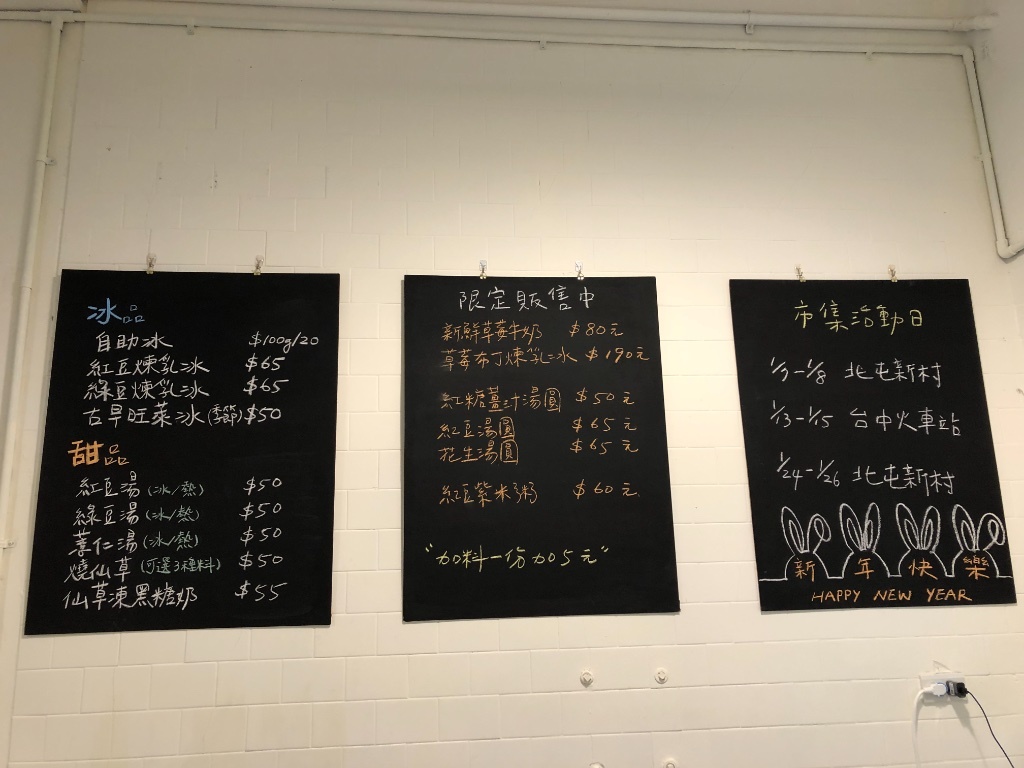 冰品
自助冰 $100g/20
紅豆煉乳冰 $65
綠豆煉乳冰 $65
古早旺萊冰(季節) $50
甜品
紅豆湯(冰/熱) $50
綠豆湯(冰/熱) $50
薏仁湯(冰/熱) $50
燒仙草(可選3種料) $50
仙草凍黑糖奶 $55
限定販售中
新鮮草莓牛奶 $80元
草莓布丁煉乳冰 $190元
紅糖薑汁湯圓 $50元
紅豆湯圓 $65元
花生湯圓 $65元
紅豆紫米粥 $60元
"加料一份加5元"
市集活動日
1/7-1/8 北屯新村
1/13-1/15 台中火車站
1/24-1/26 北屯新村
新年快樂
HAPPY NEW YEAR